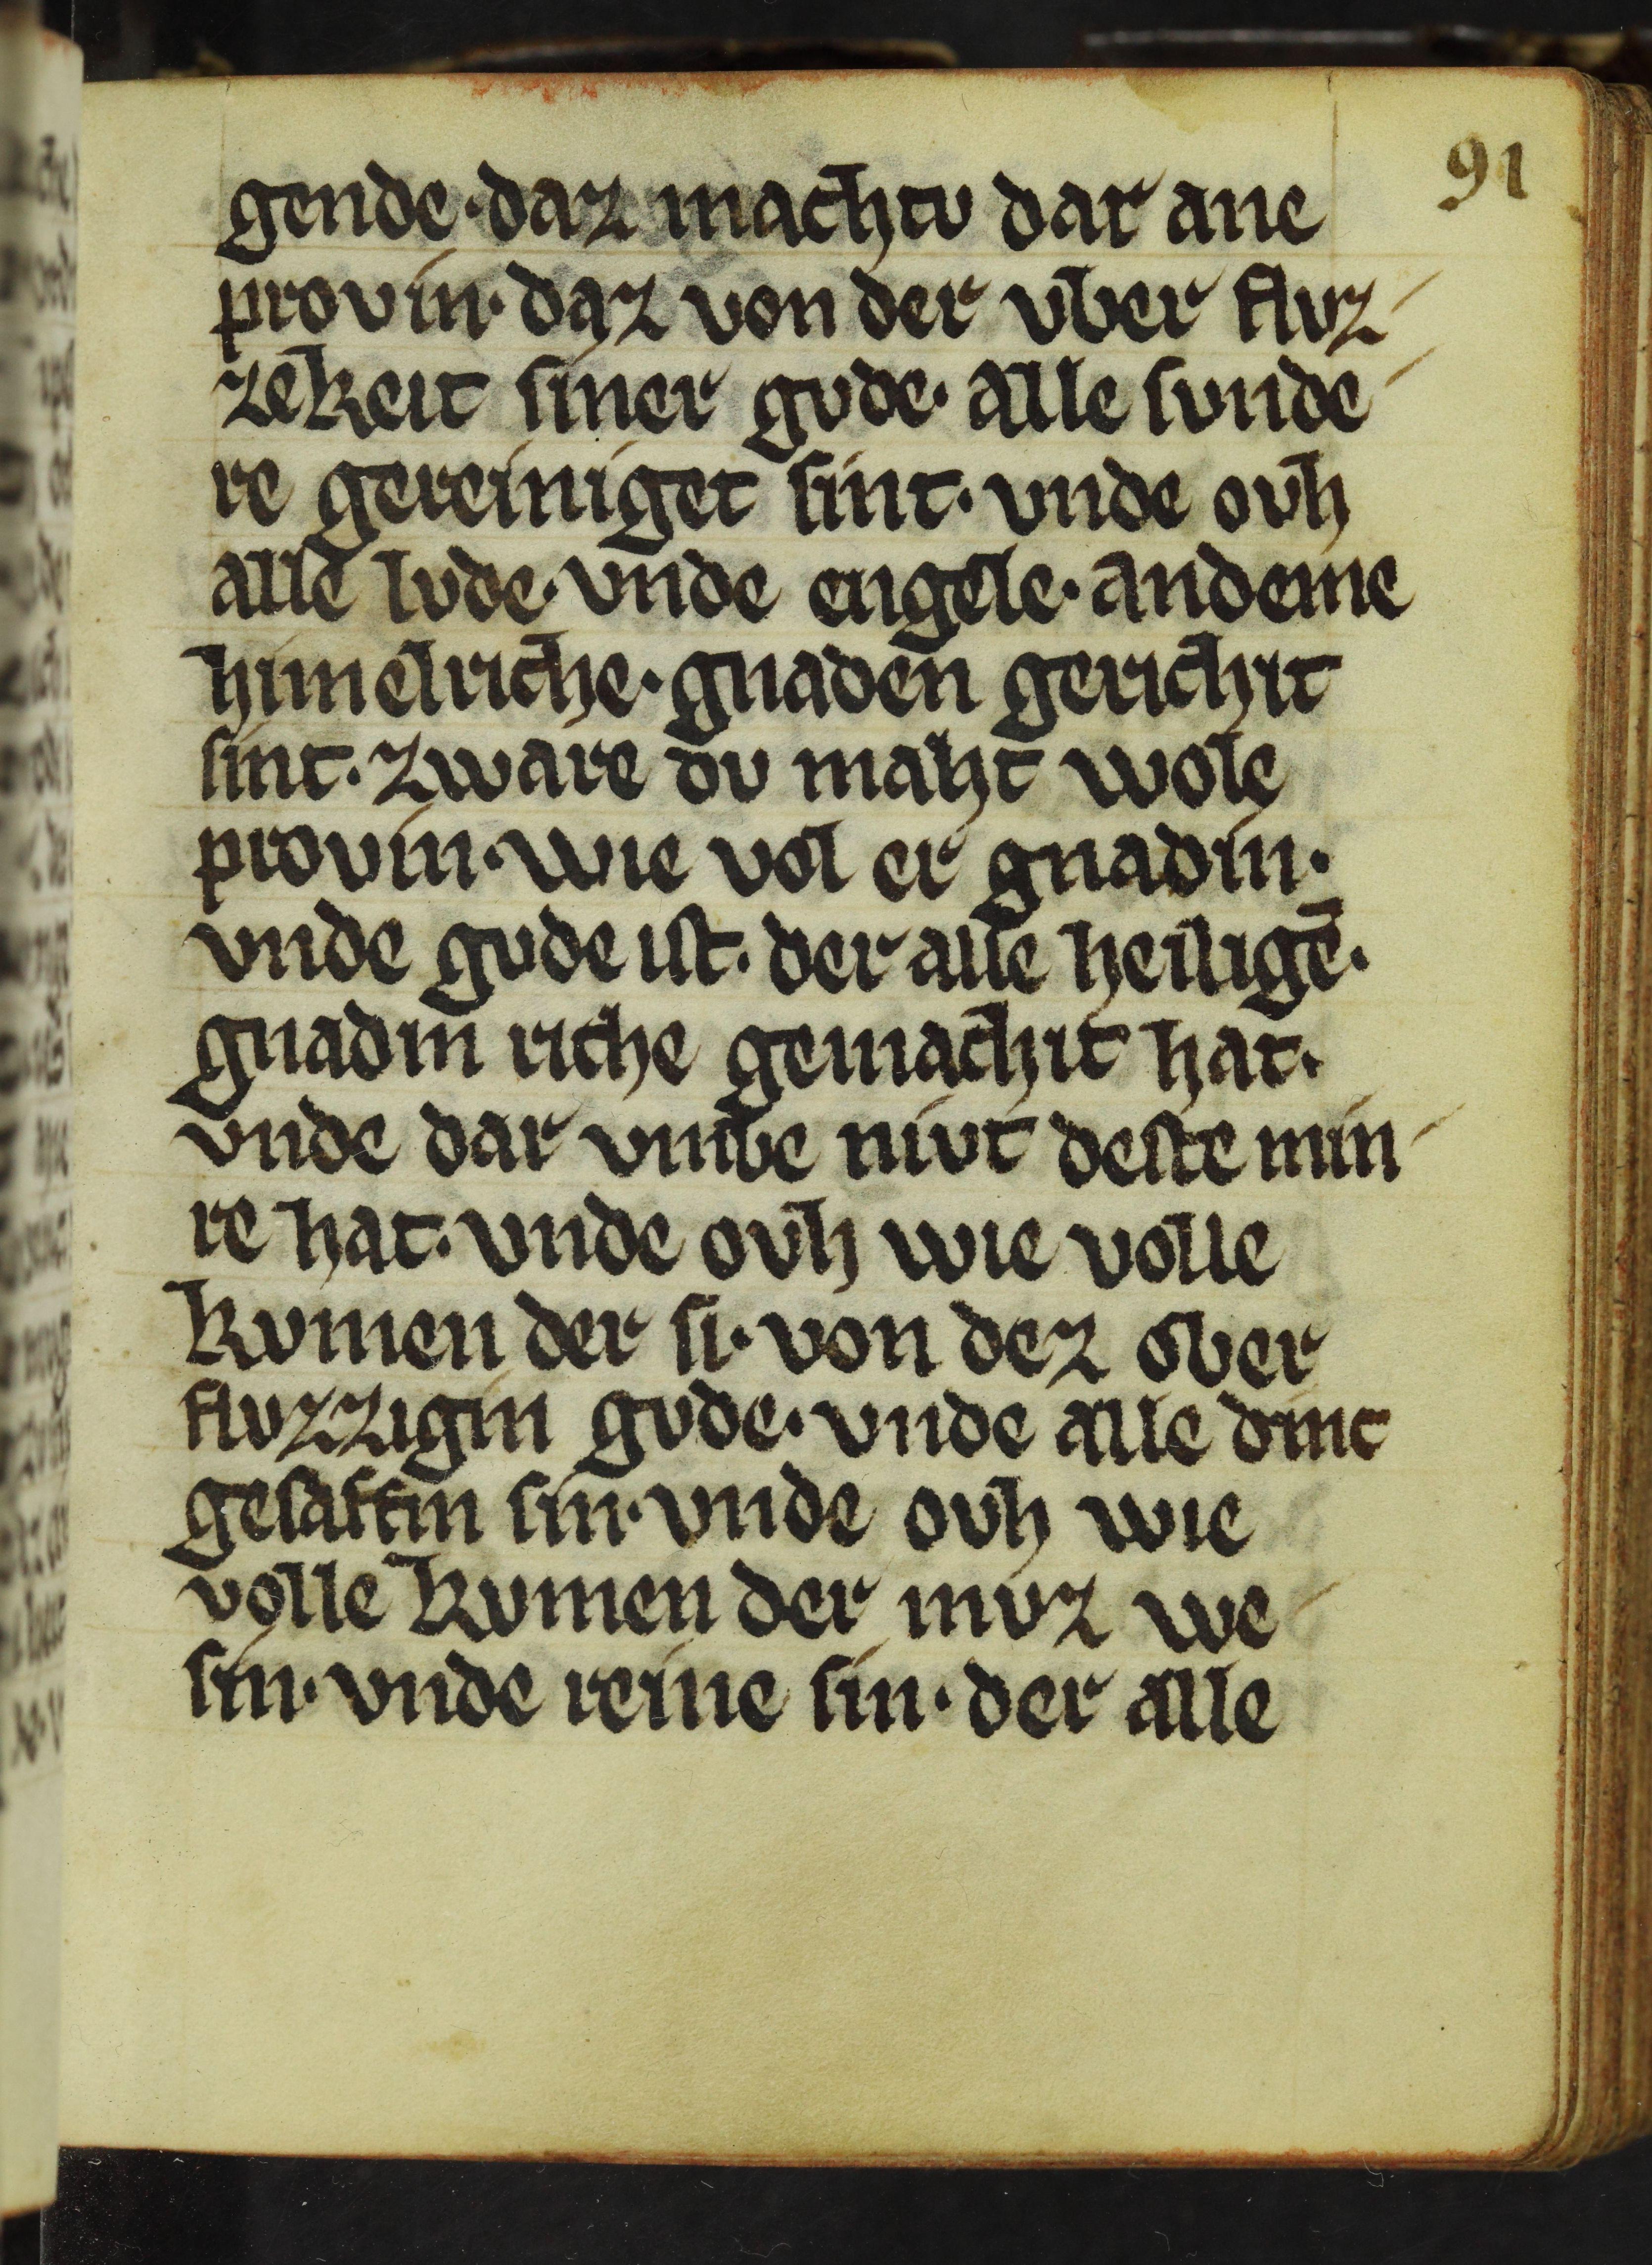 91
gende·daz machtv dar ane
provin·daz von der vber fluz-
zekeit siner gvde·alle svnde-
re gereiniget sint·vnde ovh
alle lvde·vnde engele·andeme
himelriche·gnaden gerichit
sint·zware dv maht wole
provin·wie vol er gnadin·
vnde gvde ist·der alle heiligē·
gnadin riche gemachit hat·
vnde dar vmbe nivt deste min-
re hat·vnde ovh wie volle
kvmen der si·von dez ober
flvzzigin gvde·vnde alle dinc
gesaftin sin·vnde ovh wie
volle kvmen der mvz we-
sin·vnde reine sin·der alle